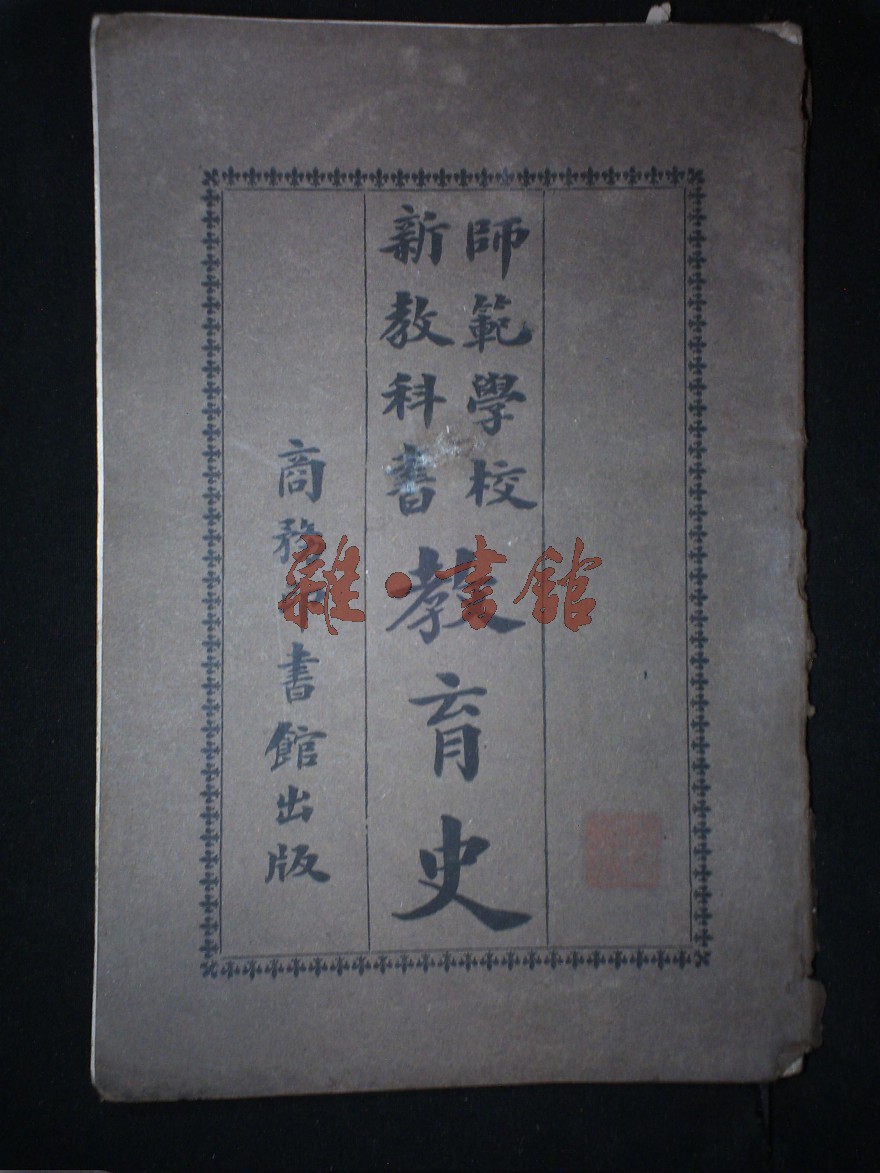 師範學校
新教科書
教育史
商務印書館出版
雜·書館